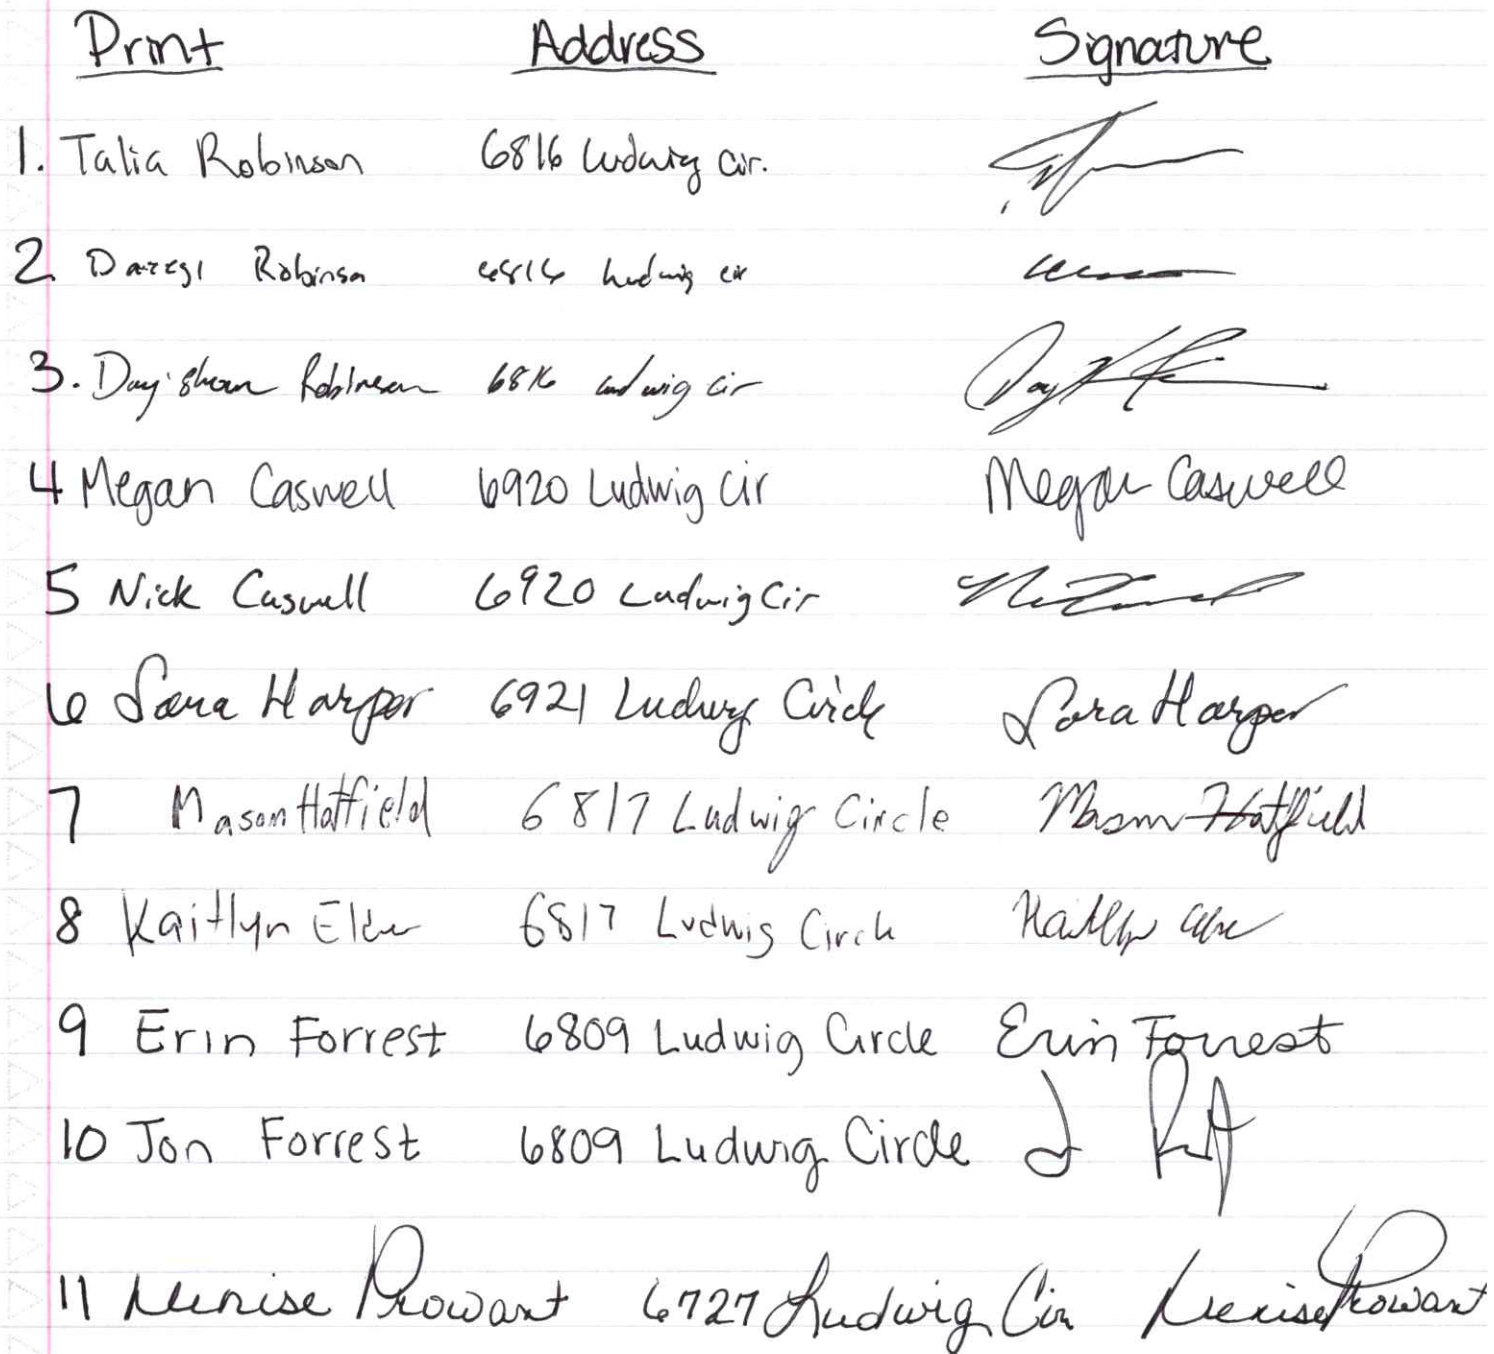 Print Address Signature
1. Talia Robinson 6816 Ludwig Cir.
2 Darryl Robinson 6816 Ludwig cir
3. Day'shawn Robinson 6816 Ludwig cir
4 Megan Caswell 6920 Ludwig Cir Megan Caswell
5 Nick Caswell 6920 Ludwig Cir
6 Sara Harper 6921 Ludwig Circle Sara Harper
7 Mason Hatfield 6817 Ludwig Circle Mason Hatfield
8 Kaitlyn 6817 Ludwig Circle Kaitlyn
9 Erin Forrest 6809 Ludwig Circle Erin Forrest
10 Jon Forrest 6809 Ludwig Circle
11 Denise Prowant 6727 Ludwig Cir Denise Prowant